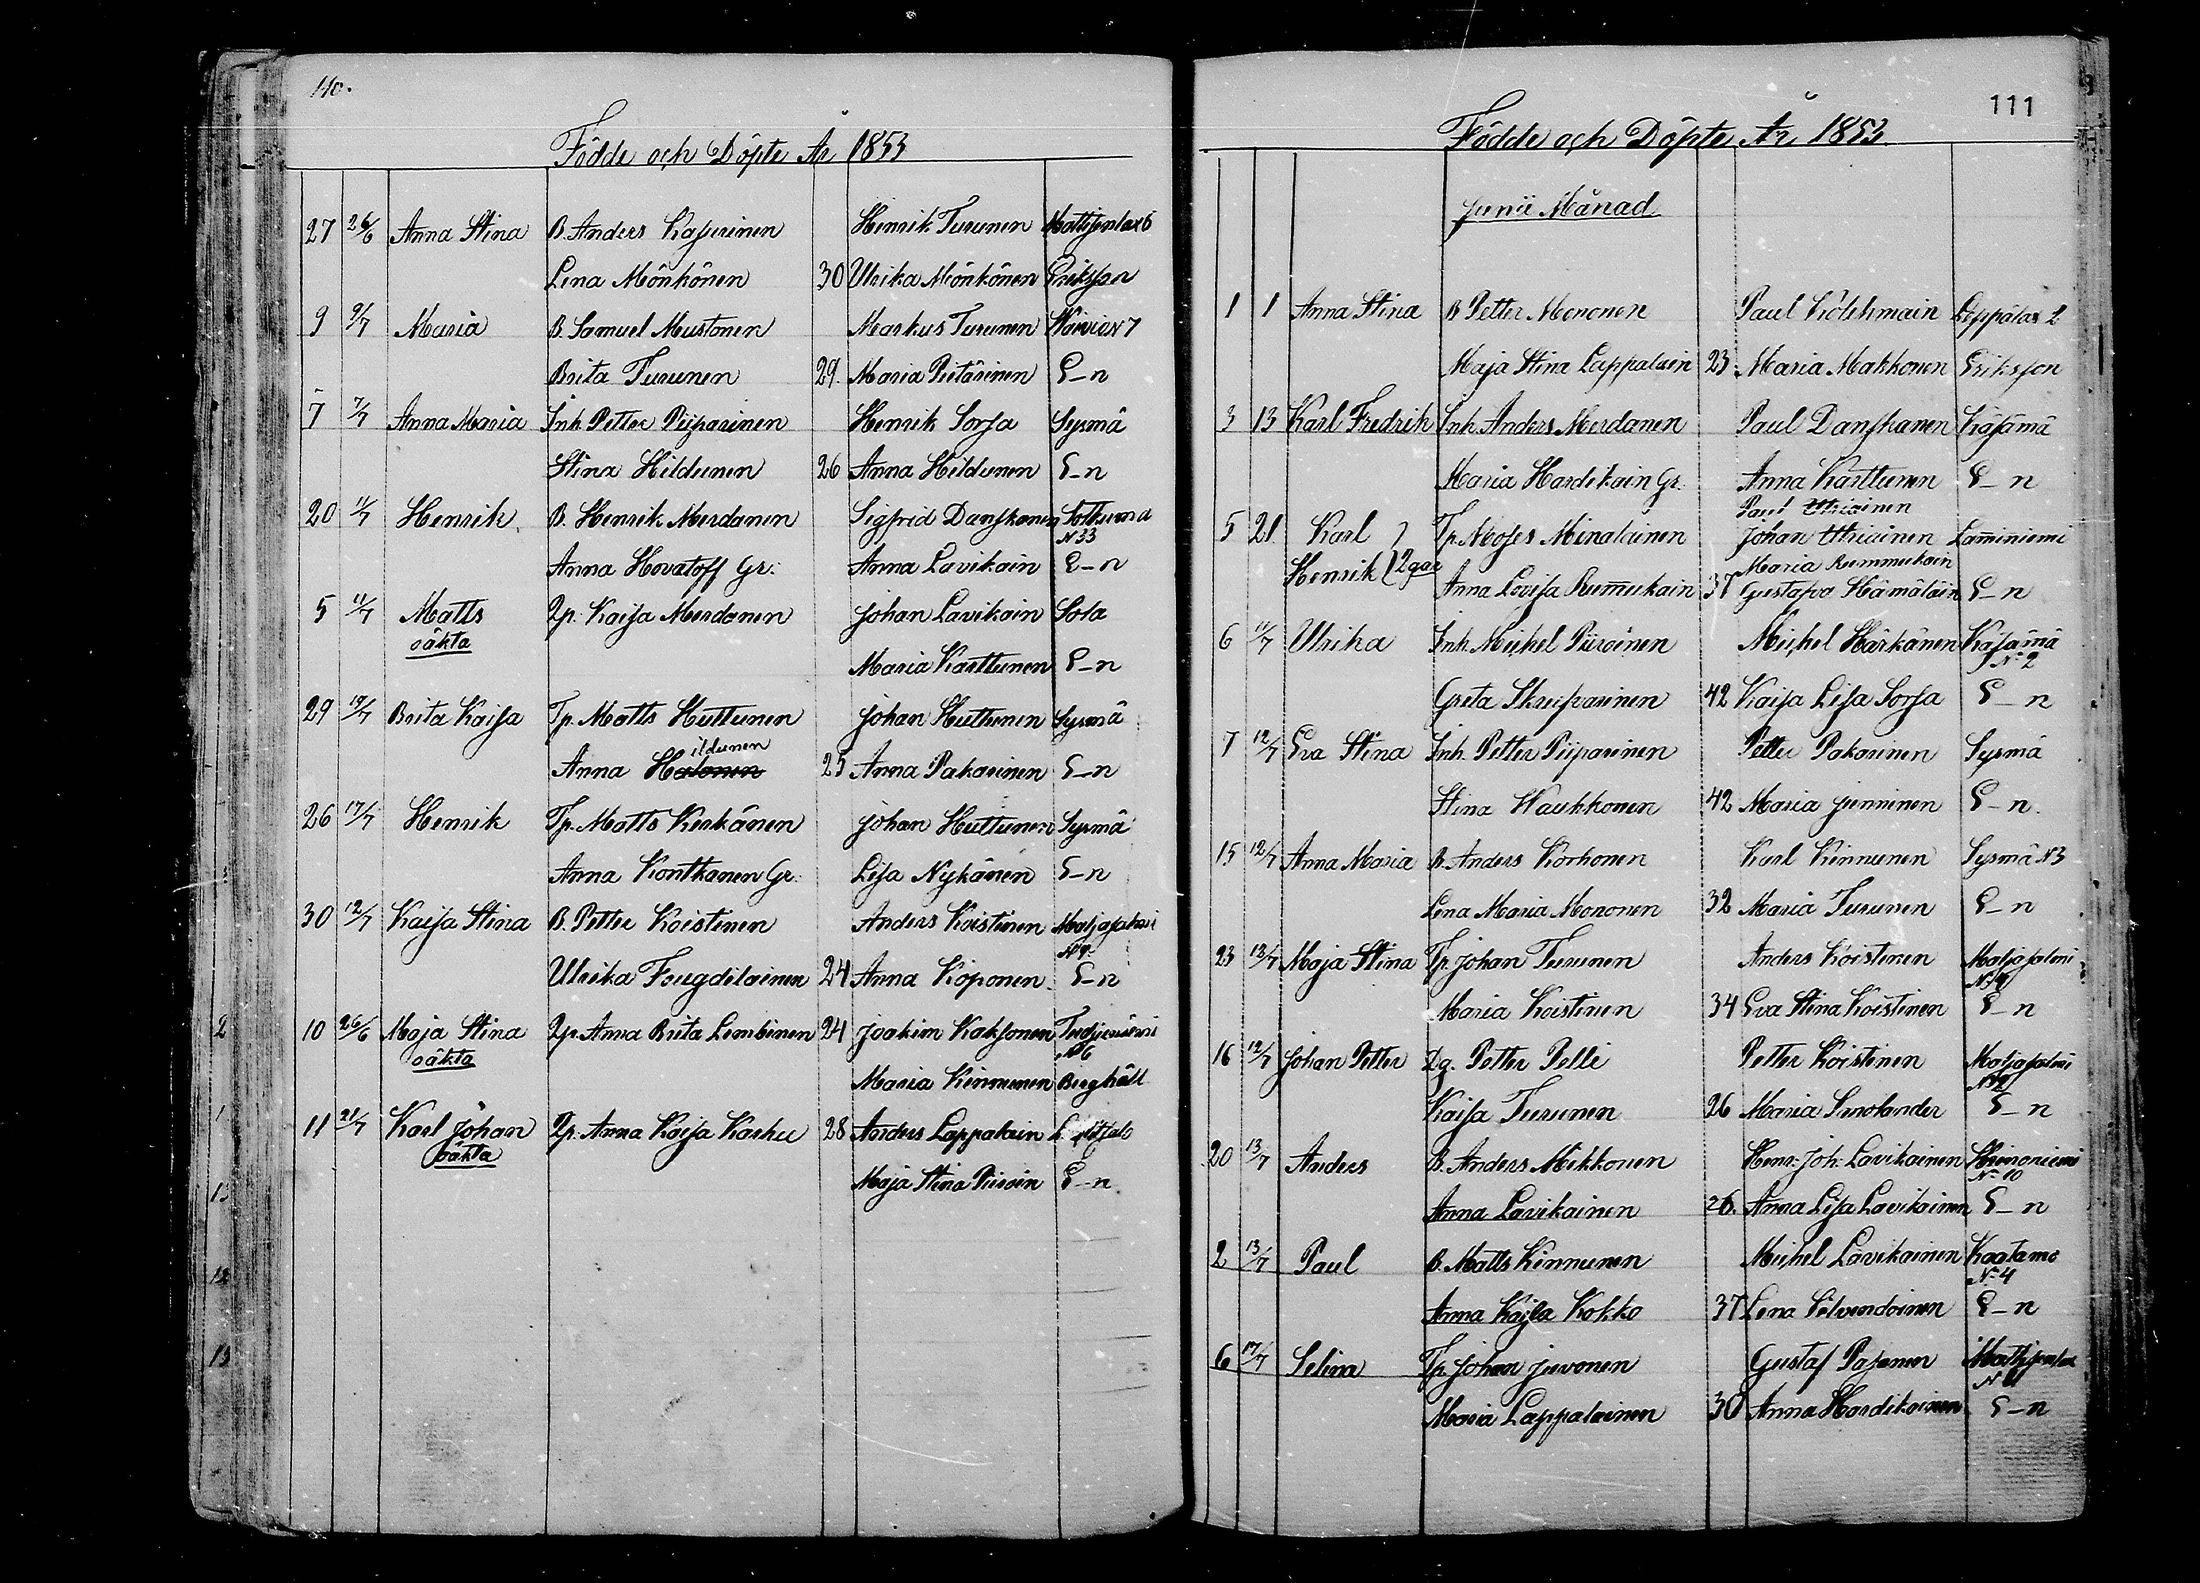 110.
Födde och Döpte År 1853
27 26/6 Anna Stina B. Anders Kasurinen Henrik Turunen
Lena Mönkönen 30 Ulrika Mönkönen Eriksson
9 9/7 Maria B. Samuel Mustonen Markus Turunen
Brita Turunen 29. Maria Pietarinen E-n
7 7/7 Anna Maria Inh. Petter Piiparinen Henrik Sorsa Sysmä
Stina Hildunen 26 Anna Hildunen E-n
20 11/7 Henrik B. Henrik Merdanen Sigfrid Danskanen Sotkuma
N 33
Anna Hovatoff Gr. Anna Lavikain E-n
5 11/7 Matts Qp. Kaisa Merdanen Johan Lavikain Sola
oäkta
Maria Karttunen E-n
29 12/7 Brita Kaisa Tp. Matts Huttunen Johan Huttunen Sysmä
ildunen
Anna Halonen 25 Anna Pakarinen E-n
26 17/7 Henrik Tp. Matts Keskänen Johan Huttunen Sysmä
Anna Kontkanen Gr. Lisa Nykänen E-n
30 12/7 Kaisa Stina B. Petter Koistinen Anders Koistinen
Ulrika Fougdilainen 24 Anna Koponen E-n
10 26/6 Maja Stina Qp. Anna Brita Lembinen 24 Joakim Kaksonen
oäkta
N 6
Maria Kinnunen Berghäll
11 21/7 Karl Johan Qp. Anna Kaisa Karhu 28 Anders Lappalain
oäkta
Maja Stina Piiroin E-n
111
Födde och Döpte År 1853.
Junii Månad
1 1 Anna Stina B Petter Mononen Paul Kölehmain Leppälax 2
Maja Stina Lappalain 23 Maria Makkonen Eriksson
3 13 Karl Fredrik Inh. Anders Merdanen Paul Danskanen Käsämä
Maria Hardikain Gr. Anna Karttunen E-n
Paul Uhiainen
5 21. Karl Tp. Moses Minalainen Johan Uhiainen Lamminiemi
Maria Rummukain
Henrik 2gar Anna Lovisa Rummukain 37 Gustafva Hämäläin E-n
6 11/7 Ulrika Inh. Michel Piiroinen Michel Härkänen Käsämä
N:2
Greta Skreiparinen 42 Kaisa Lisa Sorsa E-n
7 12/7 Eva Stina Inh. Petter Piiparinen Petter Pakarinen Sysmä
Stina Waukkonen 42 Maria Junninen E-n.
15 12/7 Anna Maria B. Anders Korhonen Karl Kinnunen Sysmä N3
Lena Maria Mononen 32 Maria Turunen E-n
23 12/7 Maja Stina Tp. Johan Turunen Anders Koistinen
Maria Koistinen 34 Eva Stina Koistinen E-n
16 12/7 Johan Petter Dg. Petter Pelli Petter Koistinen
Kaisa Turunen 26 Maria Smolander E-n
20 13/7 Anders B. Anders Mikkonen Henr: Joh: Lavikainen Heinoniemi
N:10
Anna Lavikainen 26. Anna Lisa Lavikainen E-n
2 13/7 Paul B. Matts Kinnunen Michel Lavikainen Kaatamo
N:4
Anna Kajsa Kokko 37 Lena Silvendoinen E-n
6 17/7 Selina Tp. Johan Juvonen Gustaf Pasanen
Maria Lappalainen 30 Anna Hardikainen E-n